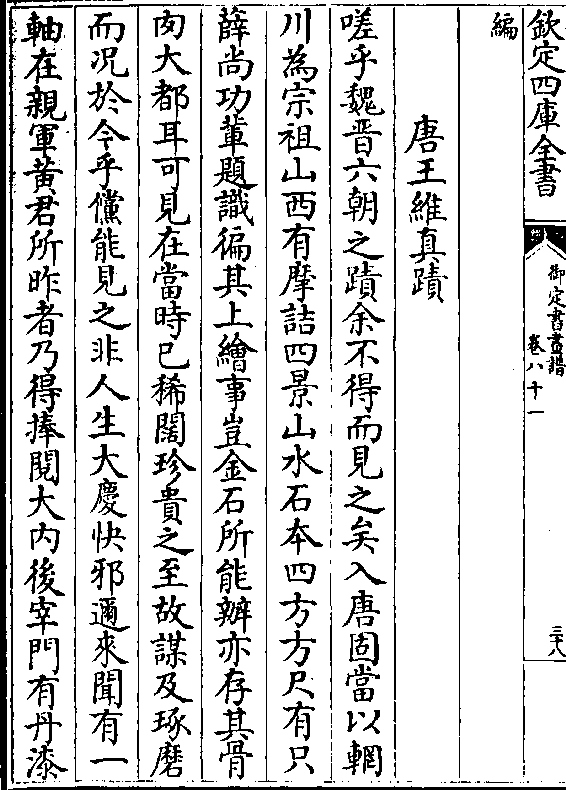 欽定四庫全書
御定書畫譜
卷八十一
三十八
編
唐王維真蹟
嗟乎魏晋六朝之蹟余不得而見之矣入唐固當以輞
川為宗祖山西有摩詰四景山水石本四方方尺有只
薛尚功軰題識徧其上繪事豈金石所能辦亦存其骨
肉大都耳可見在當時已稀闊珍貴之至故謀及琢磨
而况於今乎儻能見之非人生大慶快邪邇來聞有一
軸在親軍黄君所昨者乃得捧閲大内後宰門有丹漆